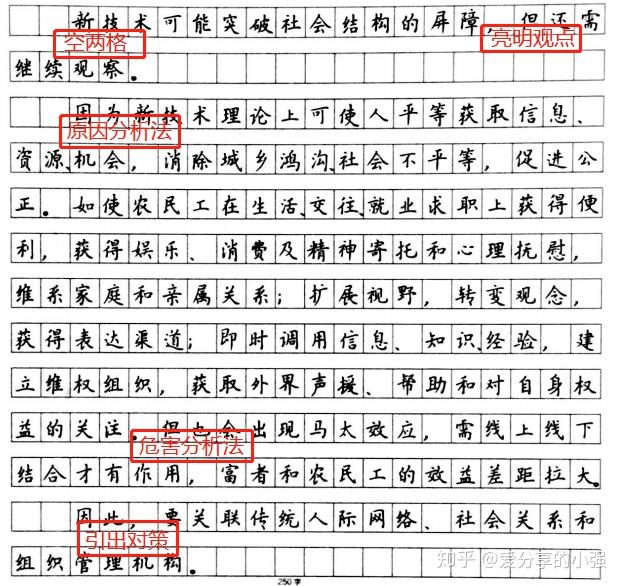 新技术可能突破社会结构的屏障，但还需
空两格
亮明观点
继续观察。
因为新技术理论上可使人平等获取信息、
原因分析法
资源、机会，消除城乡鸿沟、社会不平等，促进公
正。如使农民工在生活、交往、就业求职上获得便
利，获得娱乐、消费及精神寄托和心理抚慰，
维系家庭和亲属关系；扩展视野，转变观念，
获得表达渠道；即时调用信息、知识、经验，建
立维权组织，获取外界声援、帮助和对自身权
益的关注。但也会出现马太效应，需线上线下
危害分析法
结合才有作用，富者和农民工的效益差距拉大。
因此，要关联传统人际网络、社会关系和
引出对策
组织管理机构。
250字
知乎 @爱分享的小强